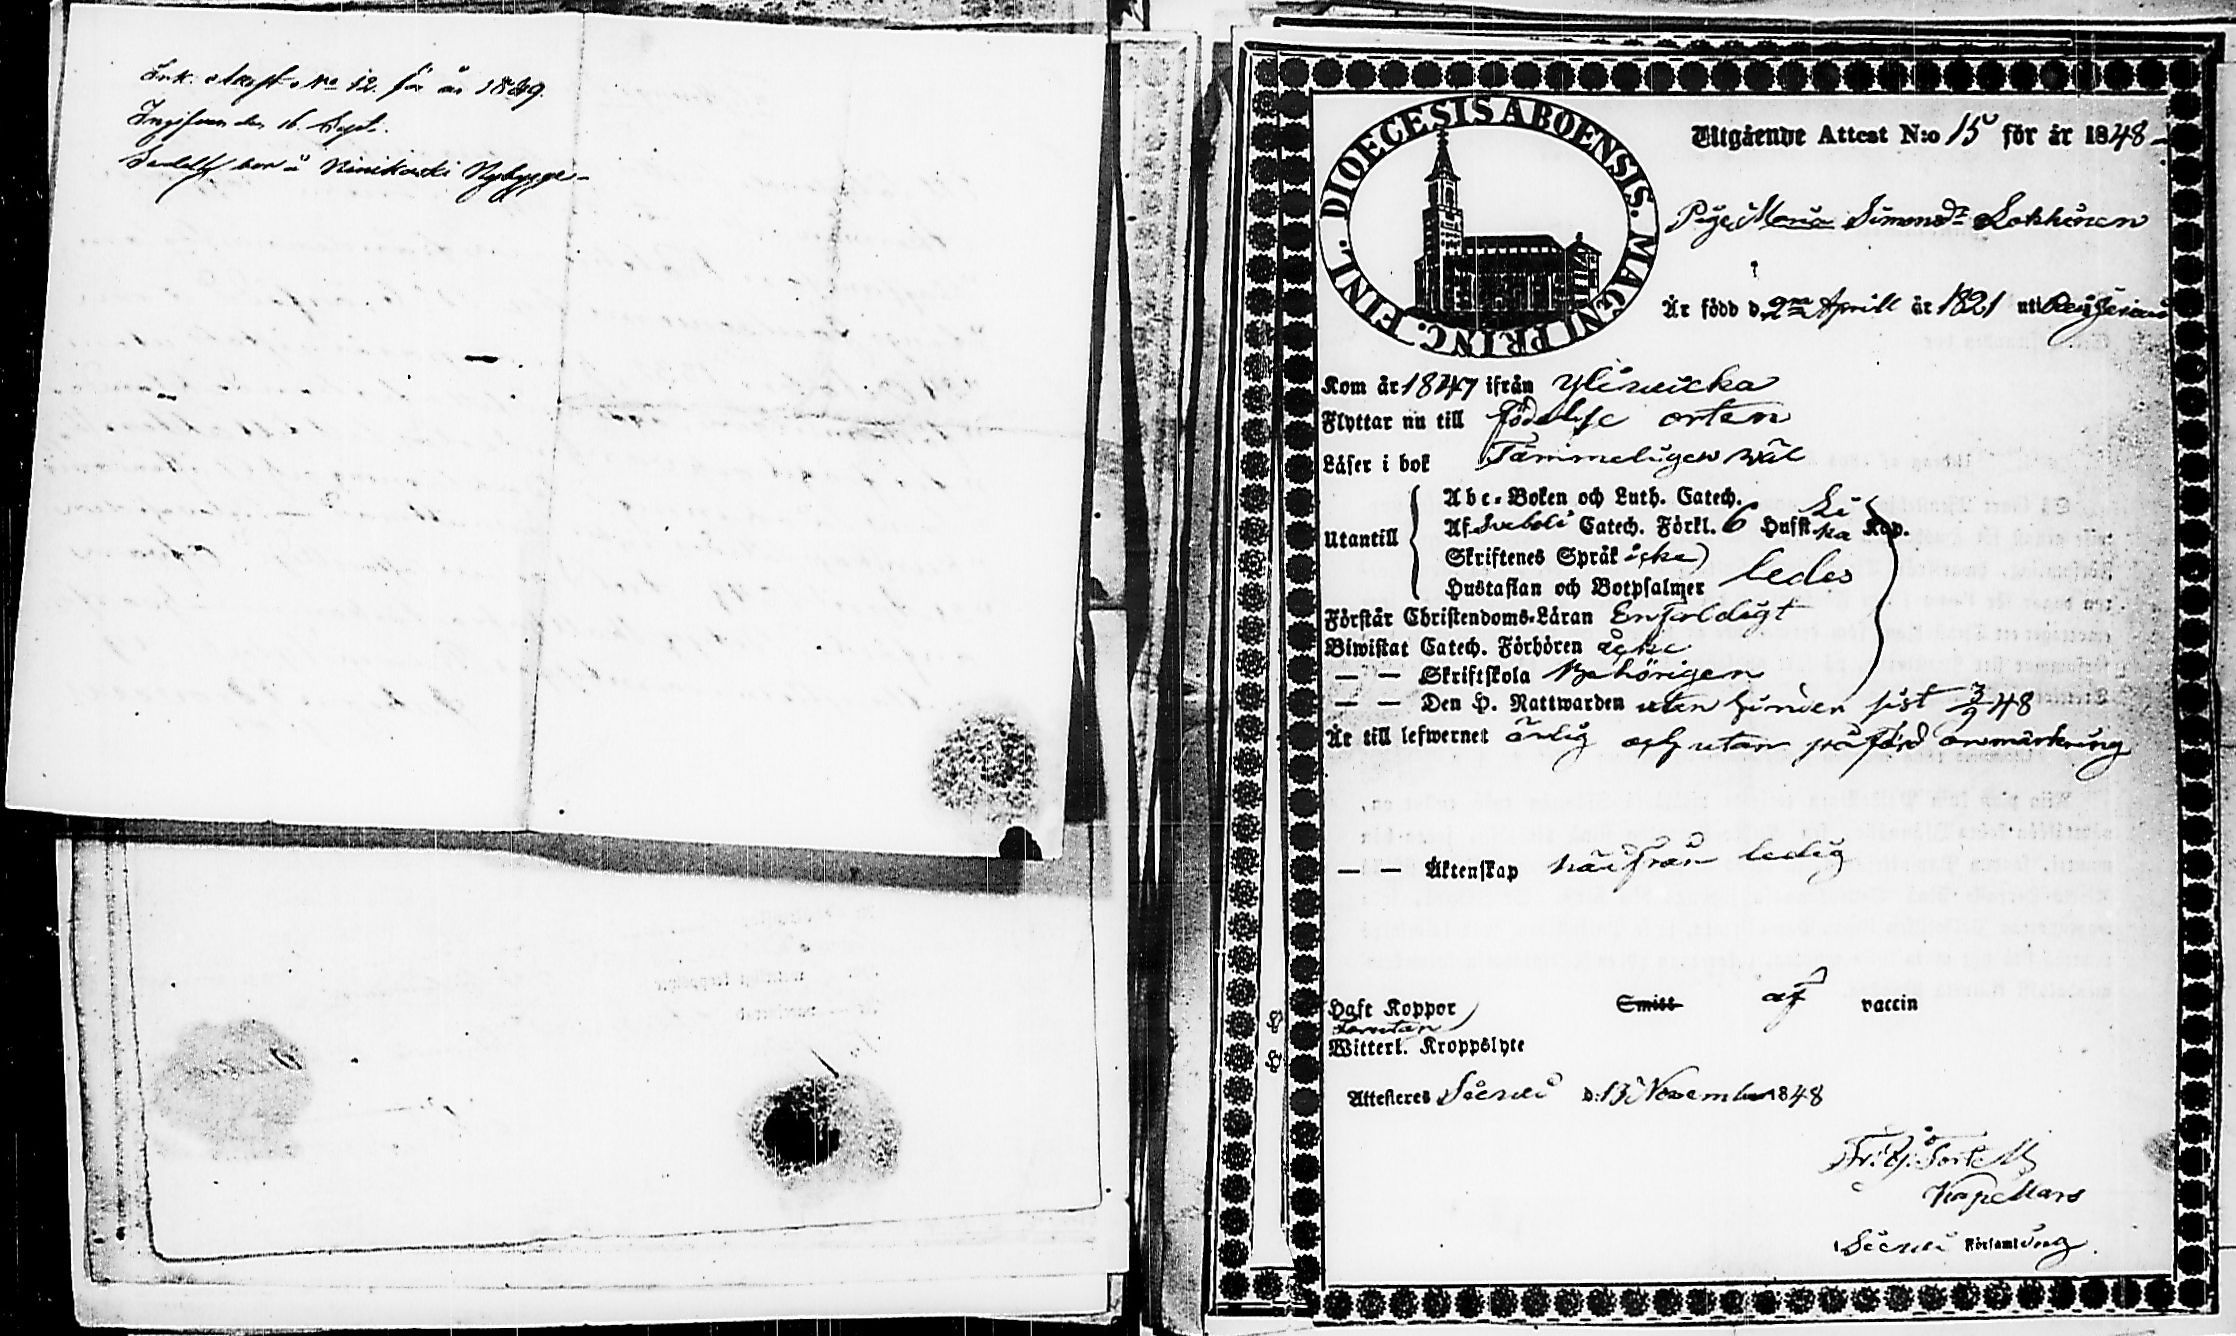 Ink. Attest No 12. för år 1849.
Ingifven den 16 Sept.
bor å Nybygge
DIOECESIS ABOENSIS. MAGNI PRINC. FINL.
Utgående Attest N:o 15 för år 1848
Pig. Maria Simonsdr Lokkinen
Är född d. 2ra Aprill år 1821 uti
Kom år 1847 ifrån Ylivieska
Flyttar nu till födelse orten
Läser i bok Tämmeligen wäl
Utantill
Abc-Boken och Luth. Catech.
Af Svebelii Catech. Förkl. 6 Hufst. Kap.
Skriftenes Språk icke
Hustaflan och Botpsalmer
ledes
Förstår Christendoms-Läran Enfaldigt
Biwistat Catech. Förhören
— — Skriftskola Behörigen
— — Den H. Nattwarden utan hinder sist 3/9 48
Är till lefwernet ärlig och utan påförd anmärkning
— — Äktenskap härifrån ledig
Haft Koppor Smitt af vaccin
Witterl. Kroppslyte
Attesteres Sievi d. 13 November 1848
Kapellans
i Sievi Församling.